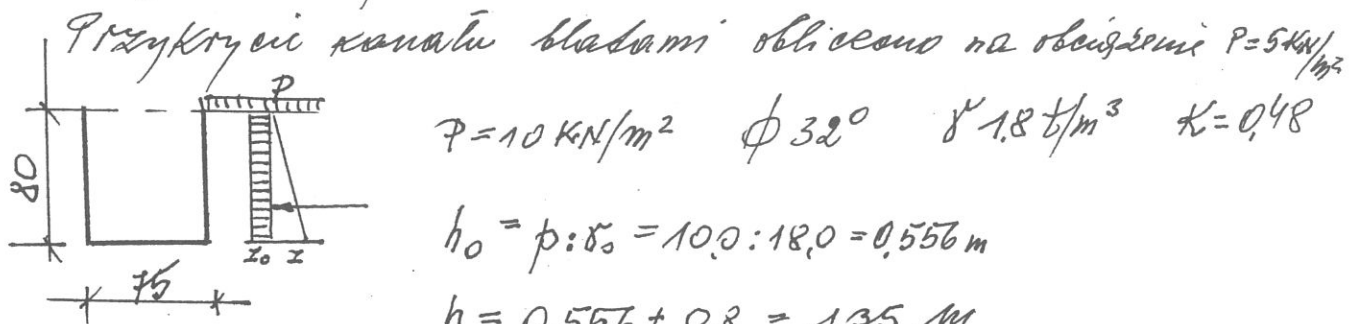 Przykrycie kanału blatami obliczono na obciążenie P=5KN/m²
P
P=10 KN/m² ϕ 32° γ 1,8 t/m³ K=0,48
80
h₀ = p:γ₀ = 10,0:18,0 = 0,556 m
I₀ I
75
h = 0,556 + 0,8 = 1,35 m